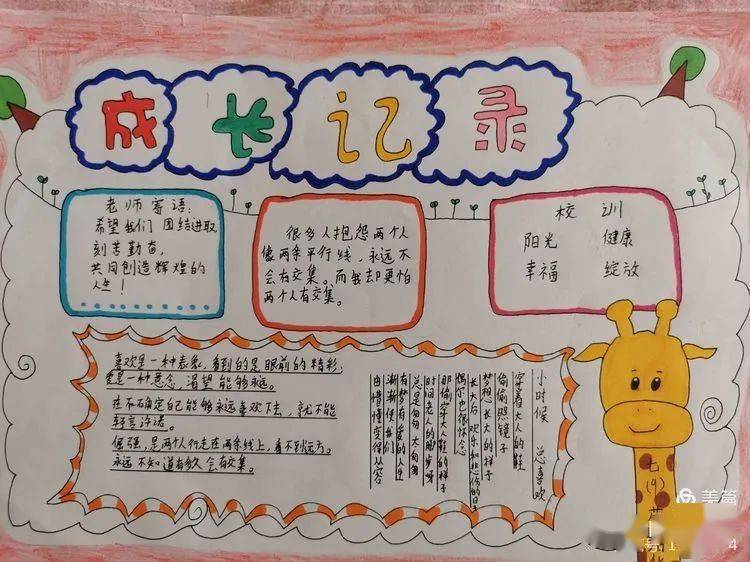 成长记录
老师寄语:
希望我们团结进取
刻苦勤奋,
共同创造辉煌的
人生!
很多人抱怨两个人
像两条平行线,永远不
会有交集。而我却更怕
两个人有交集。
校训
阳光 健康
幸福 绽放
喜欢是一种表象,看到的是眼前的精彩;
爱是一种意念,渴望能够永远。
在不确定自己能够永远喜欢下去,就不能
轻言许诺。
倔强,是两个人行走在两条线上,看不到远方。
永远不知道有多久会有交集。
小时候 总喜欢
穿着大人的鞋
偷偷照镜子
梦想长大的样子
长大后 欢乐和悲伤的日子
偶尔也很怀念
那偷穿大人鞋的样子
时间老人的脚步呀
总是匆匆太匆匆
有梦有爱的人生
渐渐使我们
由懵懂变得从容
七(9)
美篇